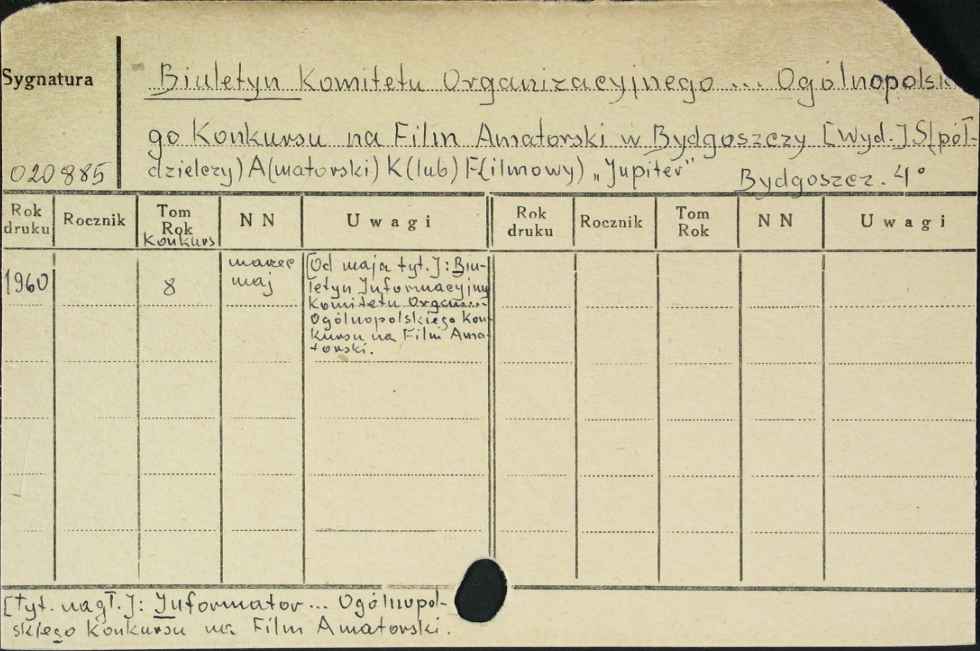 Sygnatura
Biuletyn Komitetu Organizacyjnego ... Ogólnopolsk
go Konkursu na Film Amatorski w Bydgoszczy [Wyd.] S(pół-
020885
dzielczy) A(matorski) K(lub) F(ilmowy) „Jupiter" Bydgoszcz. 4°
Rok druku Rocznik Tom Rok Konkurs NN Uwagi Rok druku Rocznik Tom Rok NN Uwagi
1960 8 marzec
maj
[Od maja tyt.]: Biu-
letyn Informacyjny
Komitetu Organ...
Ogólnopolskiego Kon-
kursu na Film Ama-
torski.
[tyt. nagł.]: Informator ... Ogólnopol-
skiego Konkursu na Film Amatorski.